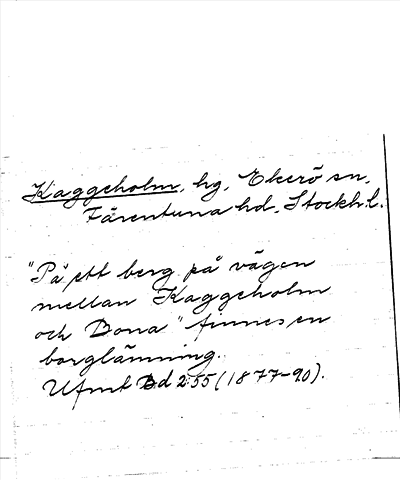 Kaggeholm, hg, Ekerö sn,
Färentuna hd, Stockh. l.
"På ett berg på vägen
mellan Kaggeholm
och Bona" finnes en
borglämning.
Ufmt Bd 2:55 (1877-90).